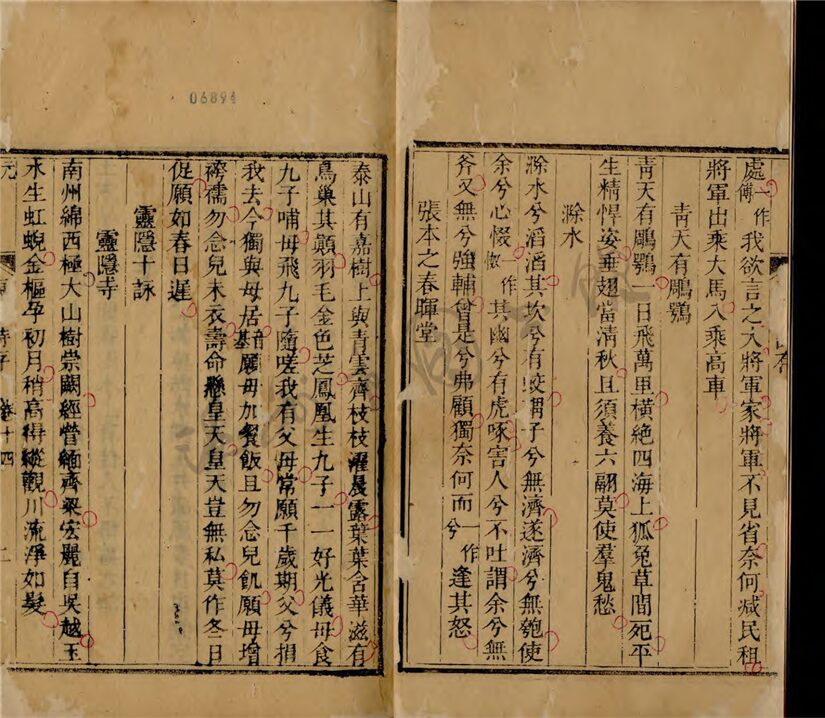 處一作傅我欲言之大將軍家將軍不見省奈何減民租
將軍出乘大馬入乘高車
青天有鵰鶚
青天有鵰鶚一日飛萬里橫絶四海上狐兔草間死平
生精悍姿垂翅當清秋且須養六翮莫使羣鬼愁
滁水
滁水兮滔滔其坎兮有蛟涸子兮無濟遂濟兮無匏使
余兮心惙一作其幽兮有虎啄害人兮不吐謂余兮無
斧又無兮強輔曾是兮弗顧獨奈何而一作兮逢其怒
張本之春暉堂
泰山有嘉樹上與青雲齊枝枝濯晨露葉葉含華滋有
鳥巢其顛羽毛金色芝鳳凰生九子一一好光儀母食
九子哺母飛九子隨嗟我有父母常願千歲期父兮捐
我去今獨與母居願母加餐飯且勿念兒飢願母增
袴襦勿念兒未衣壽命懸皇天皇天豈無私莫作冬日
促願如春日遲
靈隱十詠
靈隱寺
南州綿西極大山樹崇闕經營緬齊梁宏麗自吳越玉
水生虹蜺金樞孕初月稍高得縱觀川流淨如髮
元
詩存
卷十四
二
06894